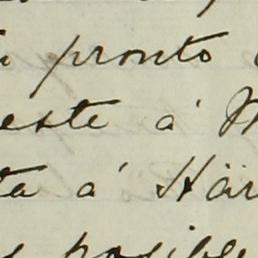 pronto
este á
ta á Här
posible